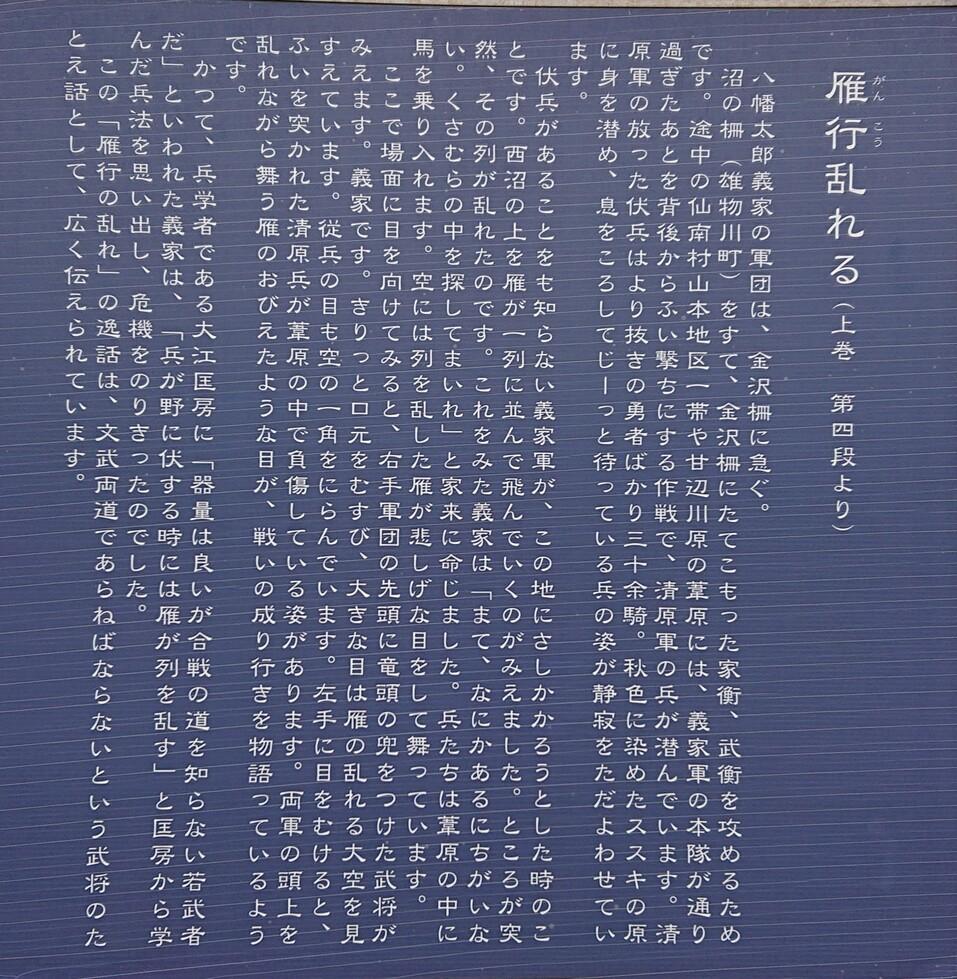 雁行乱れる（上巻　第四段より）
がん　こう
八幡太郎義家の軍団は、金沢柵に急ぐ。
沼の柵（雄物川町）をすて、金沢柵にたてこもった家衡、武衡を攻めるため
です。途中の仙南村山本地区一帯や甘辺川原の葦原には、義家軍の本隊が通り
過ぎたあとを背後からふい撃ちにする作戦で、清原軍の兵が潜んでいます。清
原軍の放った伏兵はより抜きの勇者ばかり三十余騎。秋色に染めたススキの原
に身を潜め、息をころしてじーっと待っている兵の姿が静寂をただよわせてい
ます。
伏兵があることをも知らない義家軍が、この地にさしかかろうとした時のこ
とです。西沼の上を雁が一列に並んで飛んでいくのがみえました。ところが突
然、その列が乱れたのです。これをみた義家は「まて、なにかあるにちがいな
い。くさむらの中を探してまいれ」と家来に命じました。兵たちは葦原の中に
馬を乗り入れます。空には列を乱した雁が悲しげな目をして舞っています。
ここで場面に目を向けてみると、右手軍団の先頭に竜頭の兜をつけた武将が
みえます。義家です。きりっと口元をむすび、大きな目は雁の乱れる大空を見
すえています。従兵の目も空の一角をにらんでいます。左手に目をむけると、
ふいを突かれた清原兵が葦原の中で負傷している姿があります。両軍の頭上を
乱れながら舞う雁のおびえたような目が、戦いの成り行きを物語っているよう
です。
かつて、兵学者である大江匡房に「器量は良いが合戦の道を知らない若武者
だ」といわれた義家は、「兵が野に伏する時には雁が列を乱す」と匡房から学
んだ兵法を思い出し、危機をのりきったのでした。
この「雁行の乱れ」の逸話は、文武両道であらねばならないという武将のた
とえ話として、広く伝えられています。